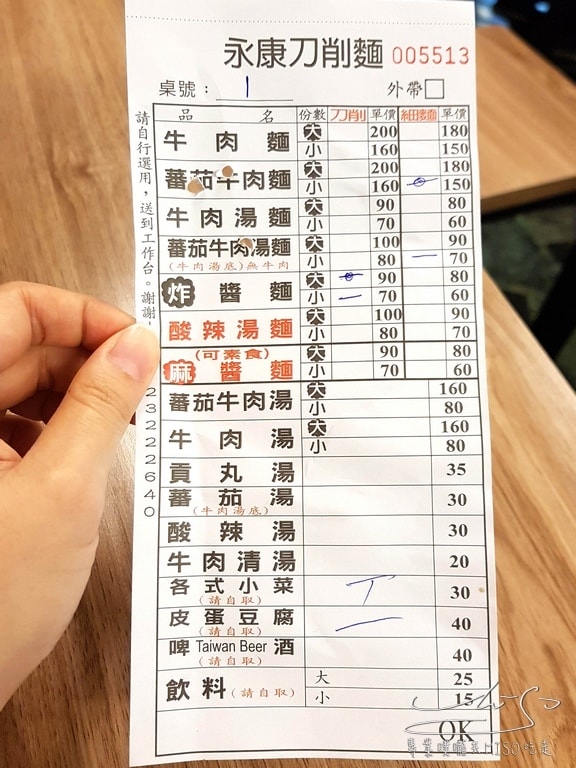 永康刀削麵 005513
桌號： 1 外帶□
品名 份數 刀削 單價 細麵 單價
牛肉麵 大 200 180
小 160 150
蕃茄牛肉麵 大 200 180
小 160 150
牛肉湯麵 大 90 80
小 70 60
蕃茄牛肉湯麵 大 100 90
(牛肉湯底)無牛肉 小 80 一 70
炸醬麵 大 90 80
小 一 70 60
酸辣湯麵 大 100 90
小 80 70
(可素食) 大 90 80
麻醬麵 小 70 60
蕃茄牛肉湯 大 160
小 80
牛肉湯 大 160
小 80
貢丸湯 35
蕃茄湯 30
(牛肉湯底)
酸辣湯 30
牛肉清湯 20
各式小菜 丅 30
(請自取)
皮蛋豆腐 一 40
(請自取)
啤 Taiwan Beer 酒 40
(請自取)
飲料(請自取) 大 25
小 15
OK
請自行選用，送到工作台。謝謝！
23222640